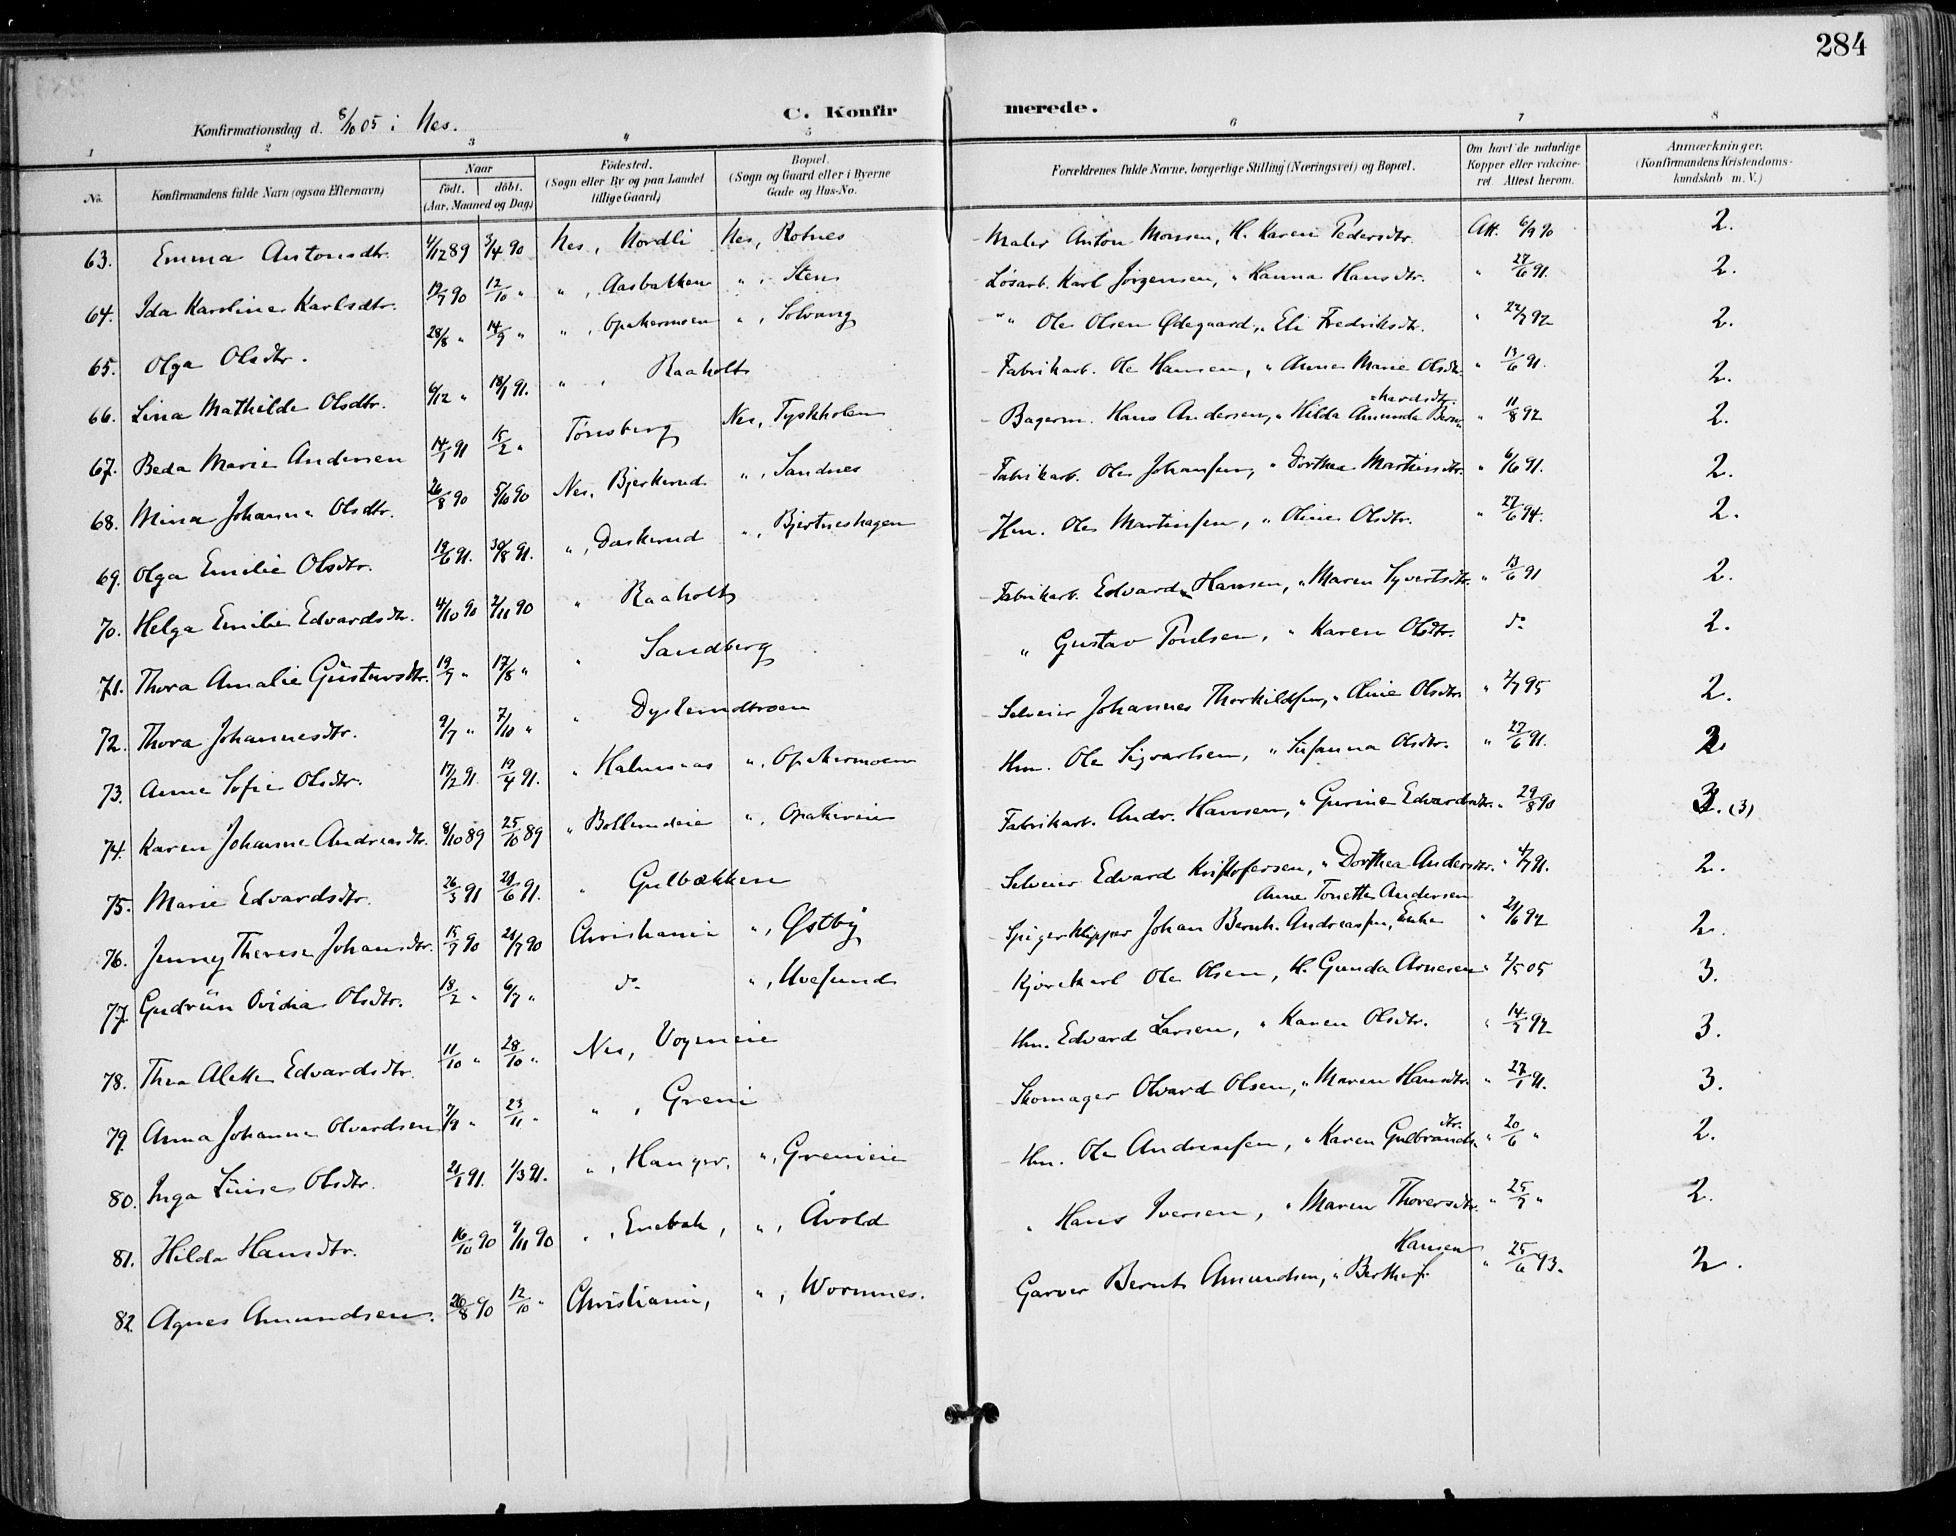 284
C. Konfir merede.
Konfirmationsdag d. 8/10 05 i Nes.
1 2 3 4 5 6 7 8
No. Konfirmandens fulde Navn (ogsaa Efternavn) Naar födt. döbt. (Aar, Maaned og Dag) Födested. (Sogn eller By og paa Landet tillige Gaard) Bopæl. (Sogn og Gaard eller i Byerne Gade og Hus-No. Forældrenes fulde Navne, borgerlige Stilling (Næringsvei) og Bopæl. Om havt de naturlige Kopper eller vakcineret. Attest herom. Anmærkninger. (Konfirmandens Kristendomskundskab m. V.)
63. Emma Antonsdtr. 4/12 89 3/4 90 Nes, Nordli Nes, Rotnes Maler Anton Monsen, H. Karen Pedersdtr. Att. 6/9 90 2.
64. Ida Karoline Karlsdtr. 19/7 90 12/10 " " , Aasbakken " , Sten Løsarb. Karl Jørgensen, " Hanna Hansdtr. " 27/6 91. 2.
65. Olga Olsdtr. 28/8 " 14/9 " " , Opakermoen " , Solvang " " Ole Olsen Ødegaard, " Eli Fredriksdtr. " 22/7 92 2.
66. Lina Mathilde Olsdtr. 6/12 " 18/1 91. " , Raaholt Fabrikarb. Ole Hansen, " Anne Marie Olsdtr. " 13/6 91. 2.
67. Beda Marie Andersen 14/1 91 15/2 " Tønsberg Nes, Tyskholen Bagerm. Hans Andersen, " Hilda Amunda Bernhardsdtr. " 11/8 92 2.
68. Mina Johanne Olsdtr. 26/8 90 5/10 90 Nes, Bjerkerud " , Sandnes Fabrikarb. Ole Johansen, " Dorthea Martinsdtr. " 6/6 91. 2.
69. Olga Emilie Olsdtr. 19/6 91. 30/8 91. " , Daskerud " , Bjertneshagen Hm. Ole Martinsen, " Oline Olsdtr. " 27/6 94. 2.
70. Helga Emilie Edvardsdtr. 4/10 90 2/11 90 " Raaholt Fabrikarb. Edvard Hansen, " Maren Syvertsdtr. " 13/6 91 2.
71. Thora Amalie Gustavsdtr. 19/7 " 17/8 " " Sandberg " Gustav Poulsen, " Karen Olsdtr. do 2.
72. Thora Johannesdtr. 9/7 " 7/10 " " Selveier Johannes Thorkildsen, " Oline Olsdtr. " 2/7 95 2.
73. Anne Sofie Olsdtr. 17/2 91. 19/4 91. " " , Opakermoen Hm. Ole Sigvartsen, " Susanna Olsdtr. " 27/6 91. 2.
74. Karen Johanne Andreasdtr. 8/10 89 25/10 89 " " , Opakereie Fabrikarb. Andr. Hansen, " Gurine Edvardsdtr. " 29/8 90 (3)
75. Marie Edvardsdtr. 26/3 91 21/6 91. " Gulbækken Selveier Edvard Kristofersen, " Dorthea Andersdtr. " 4/7 91. 2.
76. Jenny Therese Johansdtr. 15/7 90 21/7 90 Christiania " , Østby Spigerklipper Johan Bernh. Andreassen, Enke Anne Tonette Andersen " 21/6 92 2.
77. Gudrun Ovidia Olsdtr. 18/2 " 6/7 " do " , Uvesund Kjørekarl Ole Olsen, H. Gunda Arnesen " 2/5 05 3.
78. Thea Alette Edvardsdtr. 11/10 " 28/10 " Nes, Hm. Edvard Larsen, " Karen Olsdtr. " 14/7 92 3.
79. Anna Johanne Olvardsen 7/9 " 23/11 " " , Greni Skomager Olvard Olsen, " Maren Hansdtr. " 27/1 91. 3.
80. Inga Luise Olsdtr. 21/1 91. 1/3 91. " , Hanger, " , Grenieie Hm. Ole Andreassen, " Karen Gulbrandsdtr. " 20/6 " 2.
81. Hilda Hansdtr. 16/10 90 9/11 90 " , Enebak, " , Åvold " Hans Iversen, " Maren Thoresdtr. " 25/7 " 2.
82. Agnes Amundsen. 26/8 90 12/10 " Christiania, " , Wormnes. Garver Bernt Amundsen, " Berthe Hansen " 25/6 93. 2.